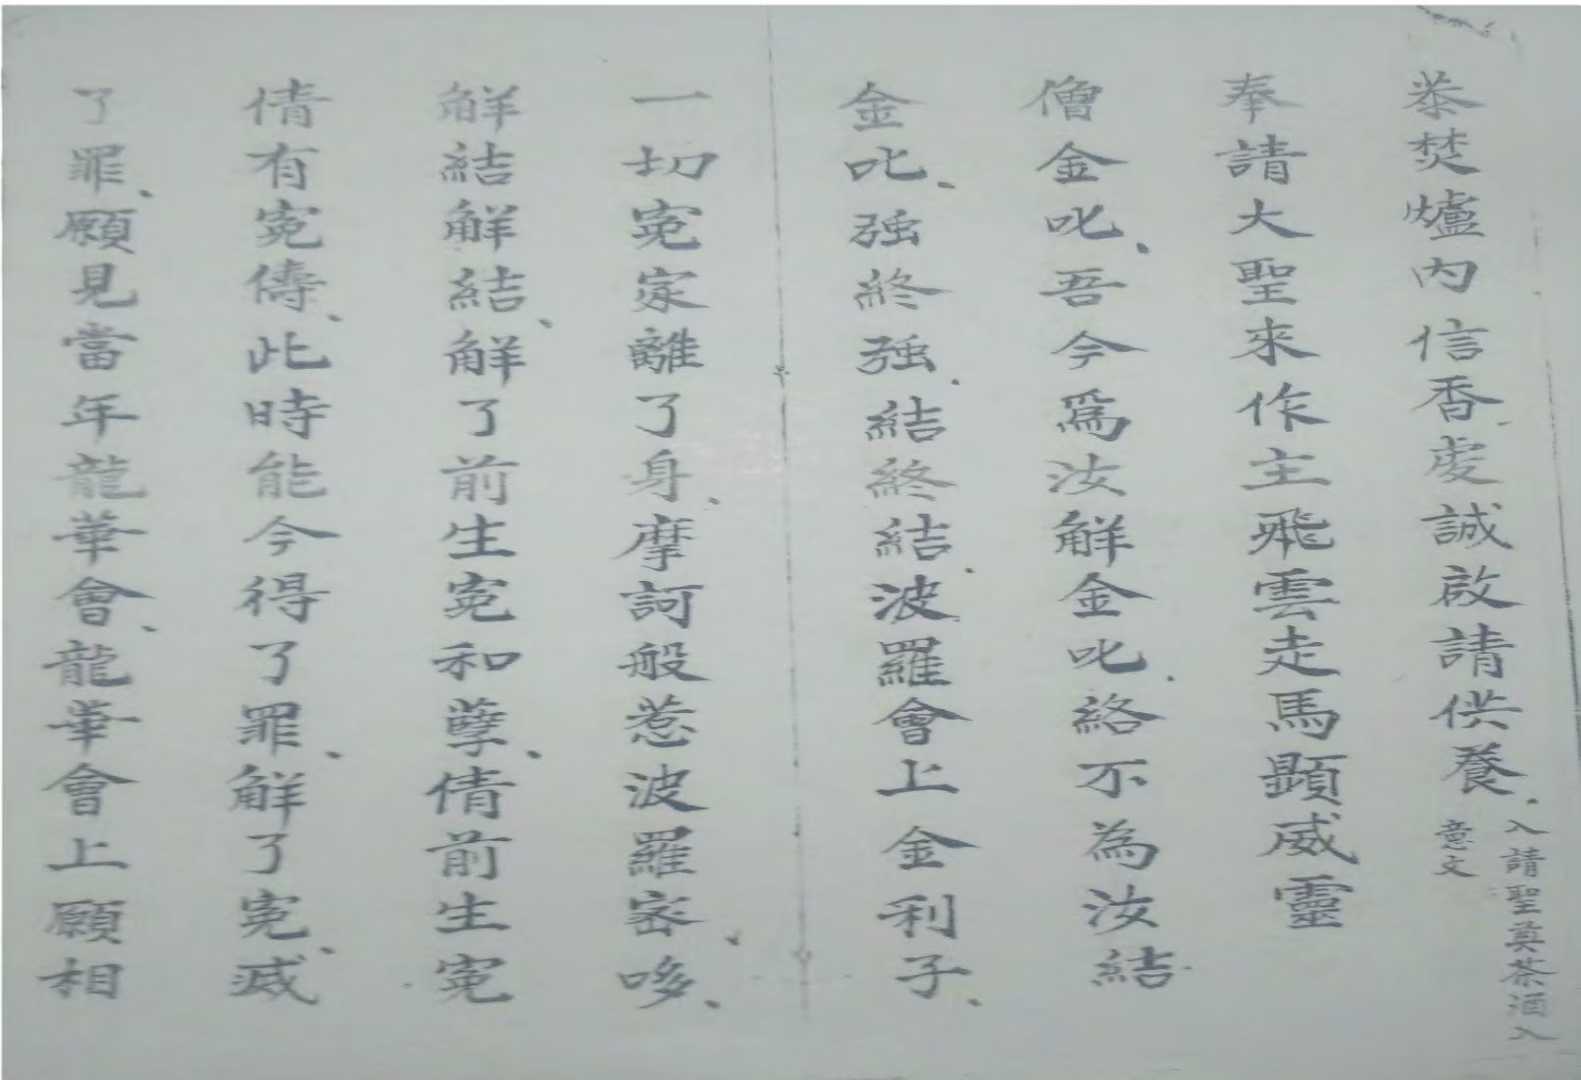 恭焚爐內信香、虔誠啟請供養、
入請聖奠茶酒入
意文
奉請大聖來作主飛雲走馬顕威靈
僧金叱、吾今爲汝觧金叱、絡不為汝結
金叱、强終强、結終結、波羅會上金利子、
一切寃家離了身、摩訶般惹波羅宻、哆、
觧結觧結、觧了前生寃和孽、倩前生寃
倩有寃儔、此時能今得了罪、觧了寃、滅
了罪、願見當年龍華會、龍華會上願相